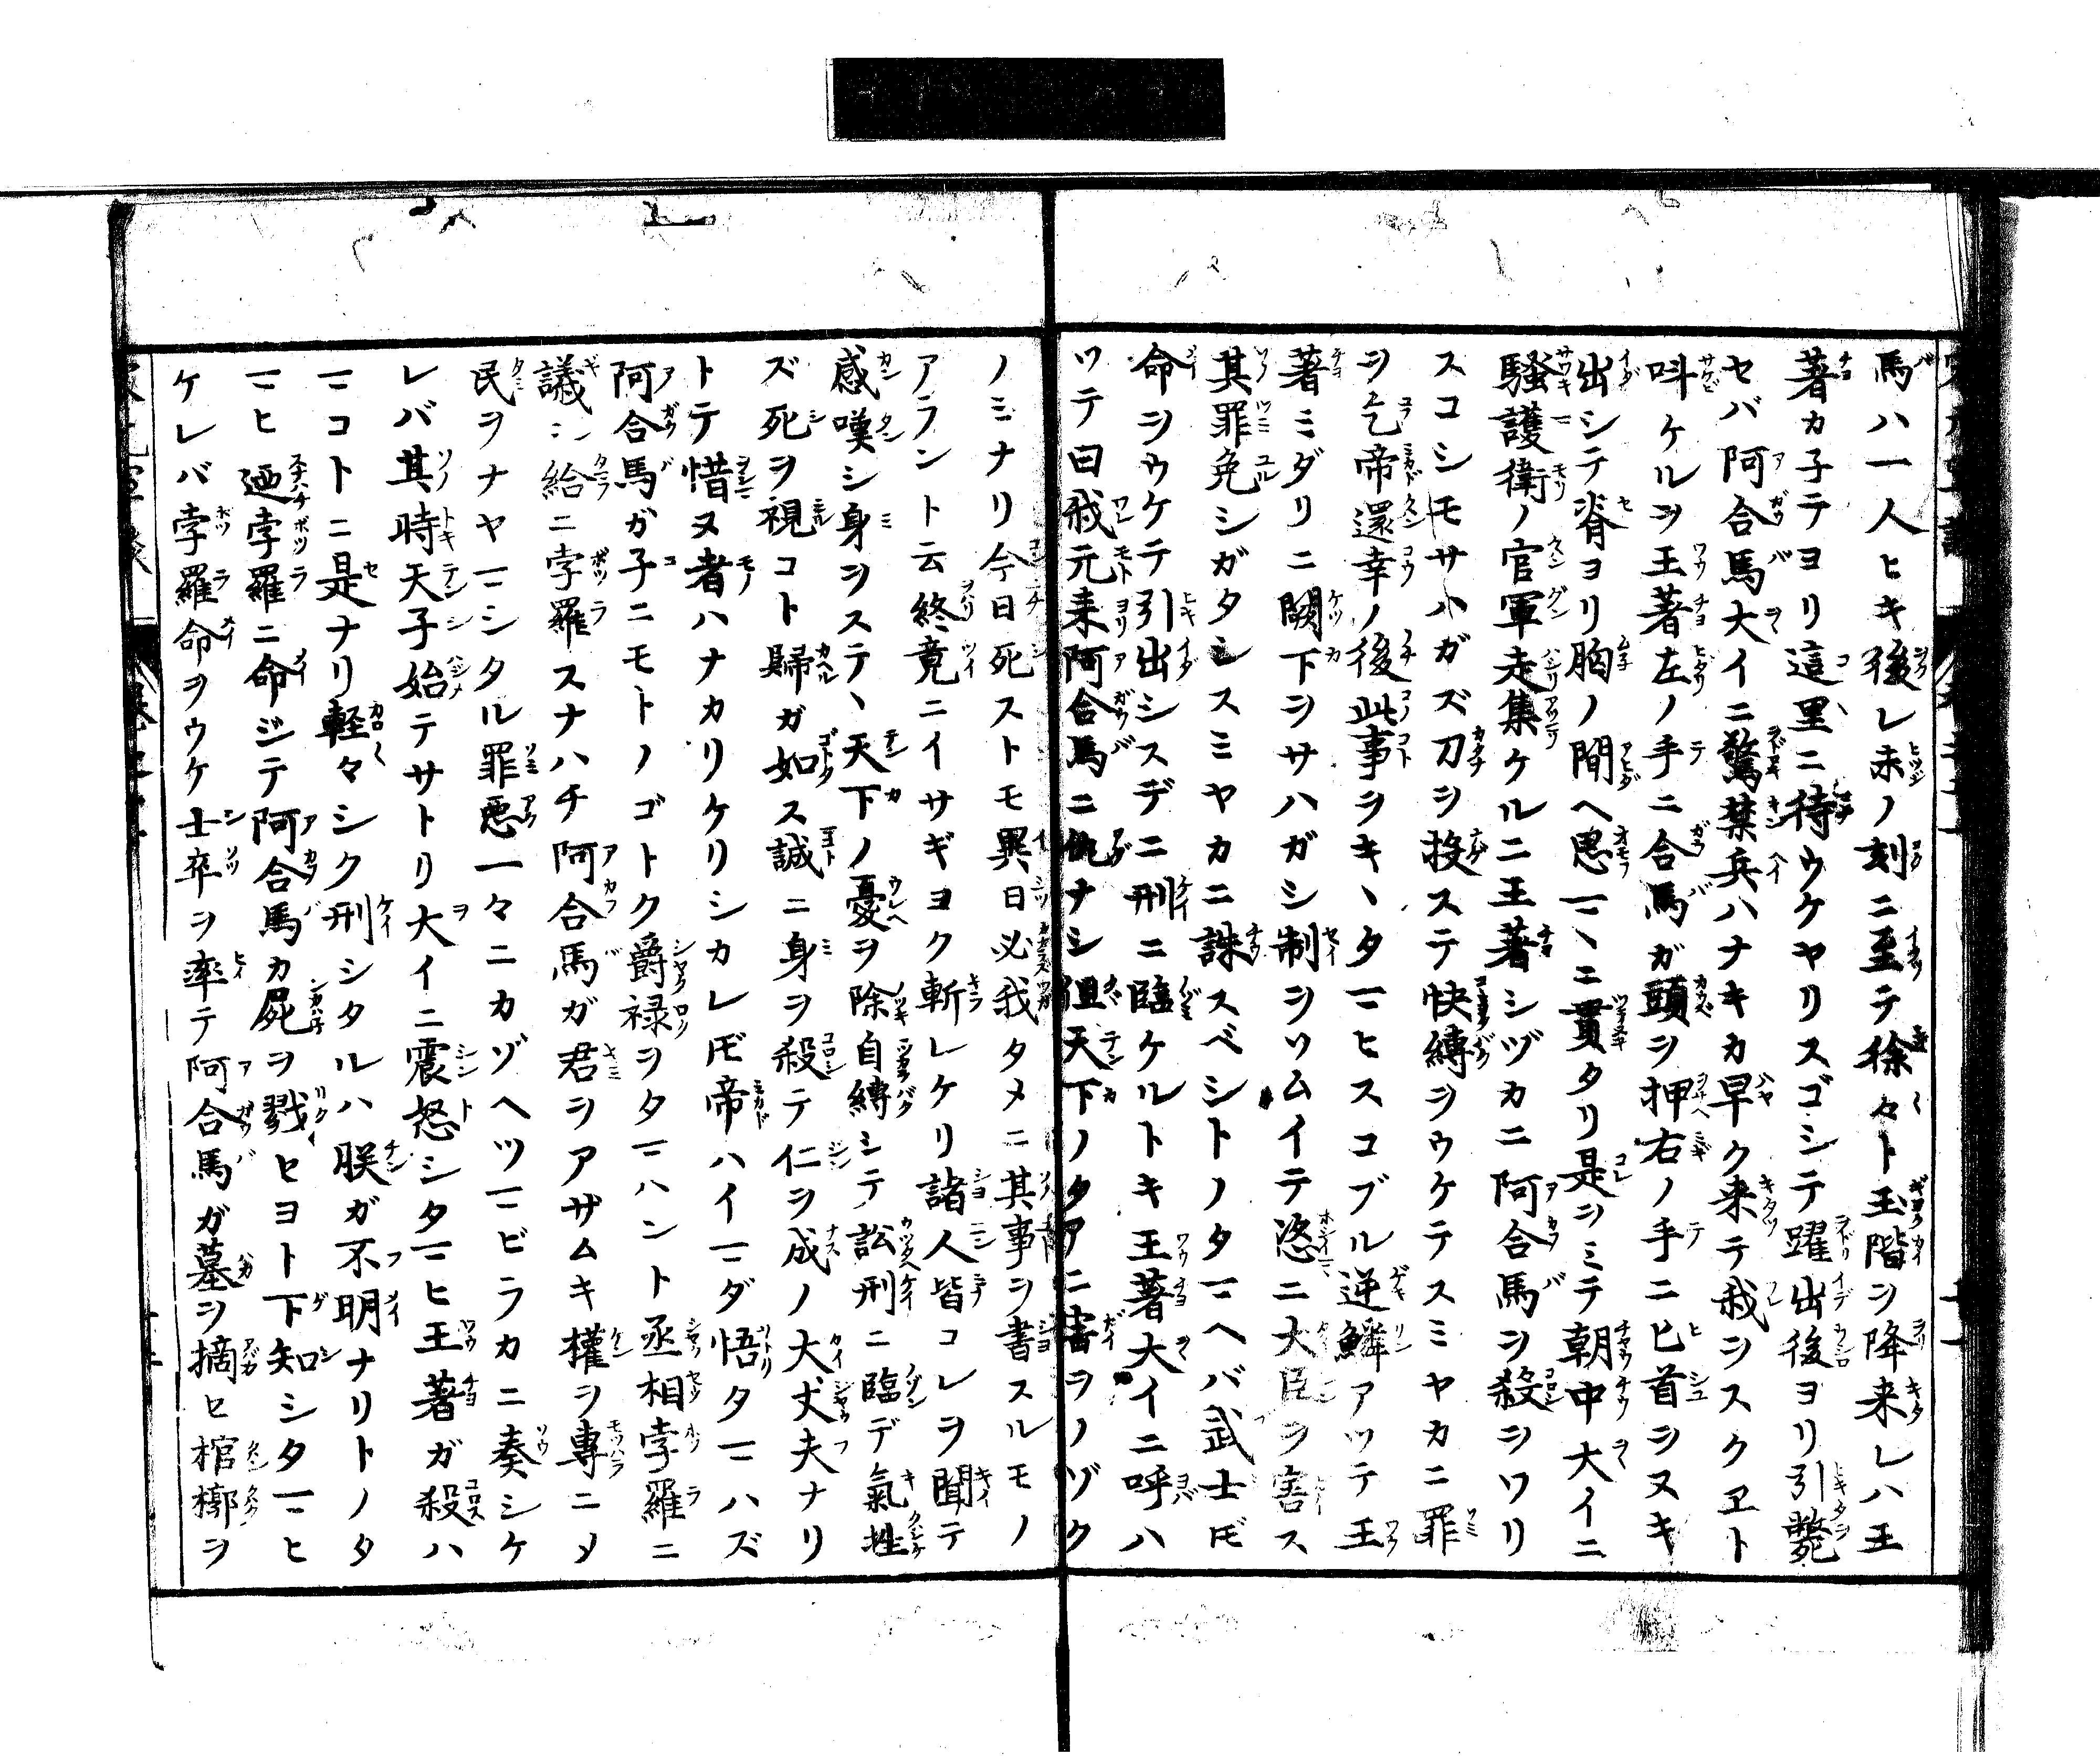 馬ハ一人ヒキ後レ未ノ刻ニ至テ徐々ト玉階ヲ降来レハ王
著カ子テヨリ這里ニ待ウケヤリスゴシテ躍出後ヨリ引斃
セバ阿合馬大イニ驚禁兵ハナキカ早ク来テ我ヲスクヱト
呌ケルヲ王著左ノ手ニ合馬ガ頭ヲ押右ノ手ニ匕首ヲヌキ
出シテ脊ヨリ胸ノ間ヘ思マヽニ貫タリ是ヲミテ朝中大イニ
騒護衛ノ官軍走集ケルニ王著シヅカニ阿合馬ヲ殺シヲワリ
スコシモサハガズ刀ヲ投ステ快縛ヲウケテスミヤカニ罪
ヲ乞帝還幸ノ後此事ヲキヽタマヒスコブル逆鱗アツテ王
著ミダリニ闕下ヲサハガシ制ヲソムイテ恣ニ大臣ヲ害ス
其罪免シガタシスミヤカニ誅スベシトノタマヘバ武士𪜈
命ヲウケテ引出シスデニ刑ニ臨ケルトキ王著大イニ呼ハ
ツテ曰我元来阿合馬ニ仇ナシ但天下ノタアニ害ヲノゾク
ノミナリ今日死ストモ異日必我タメニ其事ヲ書スルモノ
アラント云終竟ニイサギヨク斬レケリ諸人皆コレヲ聞テ
感嘆シ身ヲステヽ天下ノ憂ヲ除自縛シテ訟刑ニ臨デ氣性
ズ死ヲ視コト歸ガ如ス誠ニ身ヲ殺テ仁ヲ成ノ大丈夫ナリ
トテ惜ヌ者ハナカリケリシカレ𪜈帝ハイマダ悟タマハズ
阿合馬ガ子ニモトノゴトク爵禄ヲタマハント丞相孛羅ニ
議シ給ニ孛羅スナハチ阿合馬ガ君ヲアザムキ權ヲ專ニメ
民ヲナヤマシタル罪惡一々ニカゾヘツマビラカニ奏シケ
レバ其時天子始テサトリ大イニ震怒シタマヒ王著ガ殺ハ
マコトニ是ナリ軽々シク刑シタルハ朕ガ不明ナリトノタ
マヒ廼孛羅ニ命ジテ阿合馬カ屍ヲ戮セヨト下知シタマヒ
ケレバ孛羅命ヲウケ士卒ヲ率テ阿合馬ガ墓ヲ摘ヒ棺槨ヲ